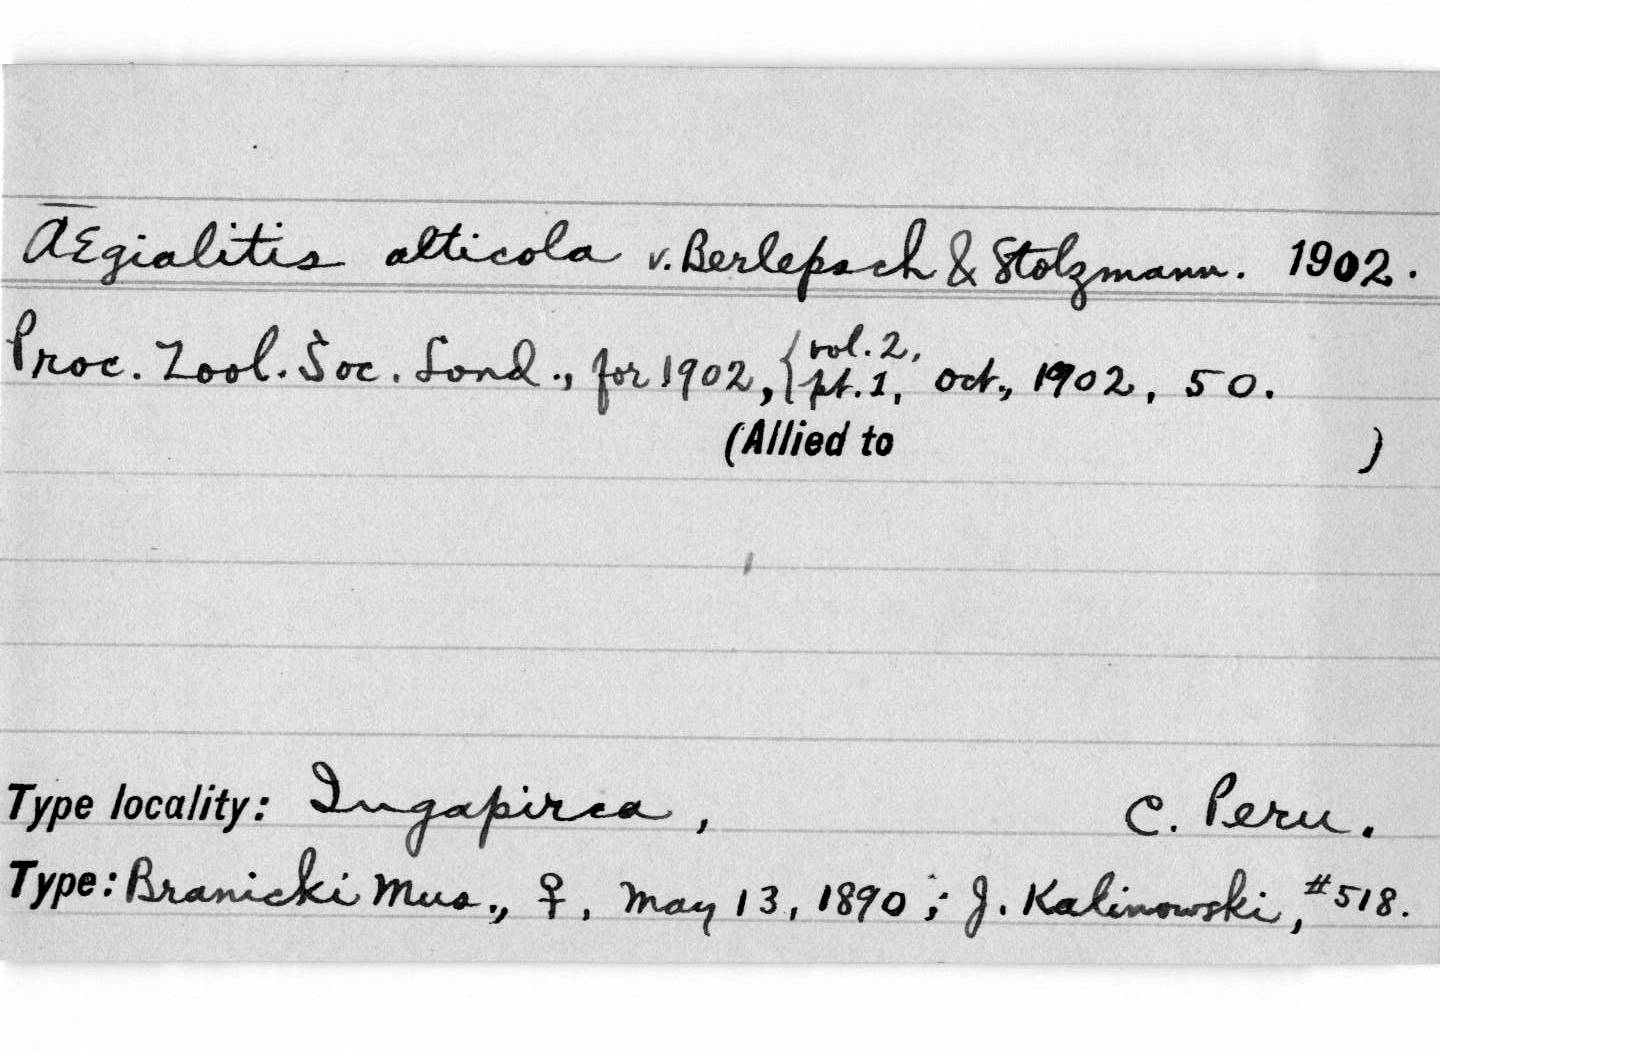 Ægialitis alticola v. Berlepsch & Stolzmann. 1902.
Proc. Zool. Soc. Lond., for 1902, { vol. 2, pt. 1, Oct., 1902, 50.
(Allied to )
Type locality: Ingapirca, C. Peru.
Type: Branicki Mus., ♀, May 13, 1890; J. Kalinowski, #518.